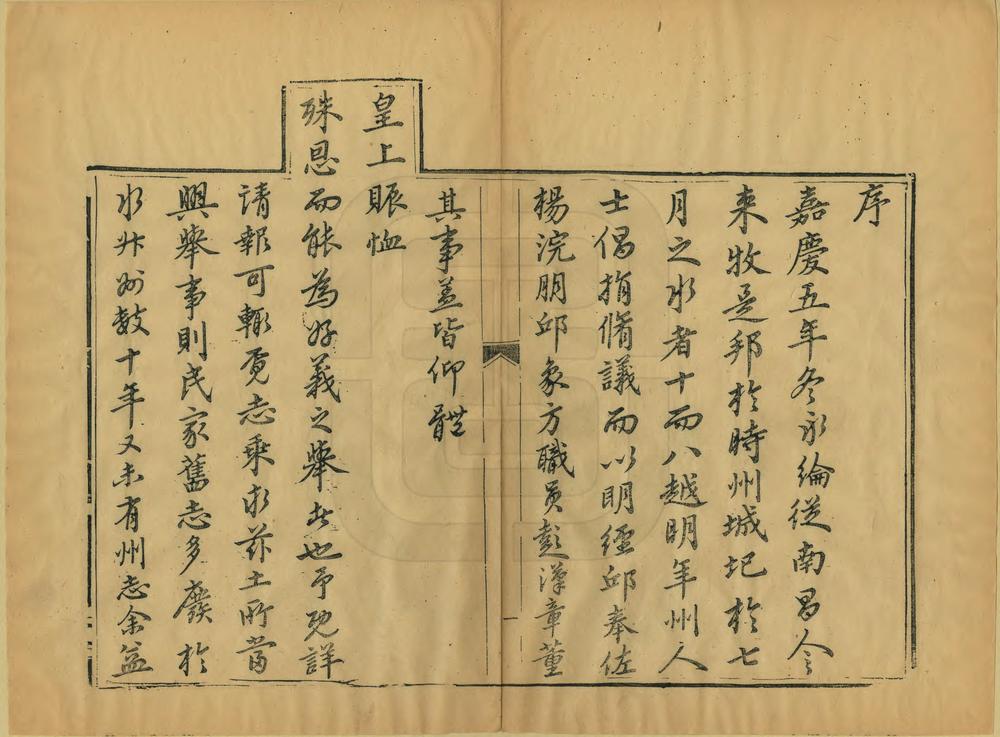 序
嘉慶五年冬永綸從南昌令
來牧是邦於時州城圮於七
月之水者十而八越明年州人
士倡捐脩議而以明經邱奉佐
楊浣朋邱象方職員彭漢章董
其事蓋皆仰體
皇上賑恤
殊恩而能為好義之舉者也予既詳
請報可輒覓志乘求茲土所當
興舉事則民家舊志多廢於
水升州數十年又未有州志余益
一